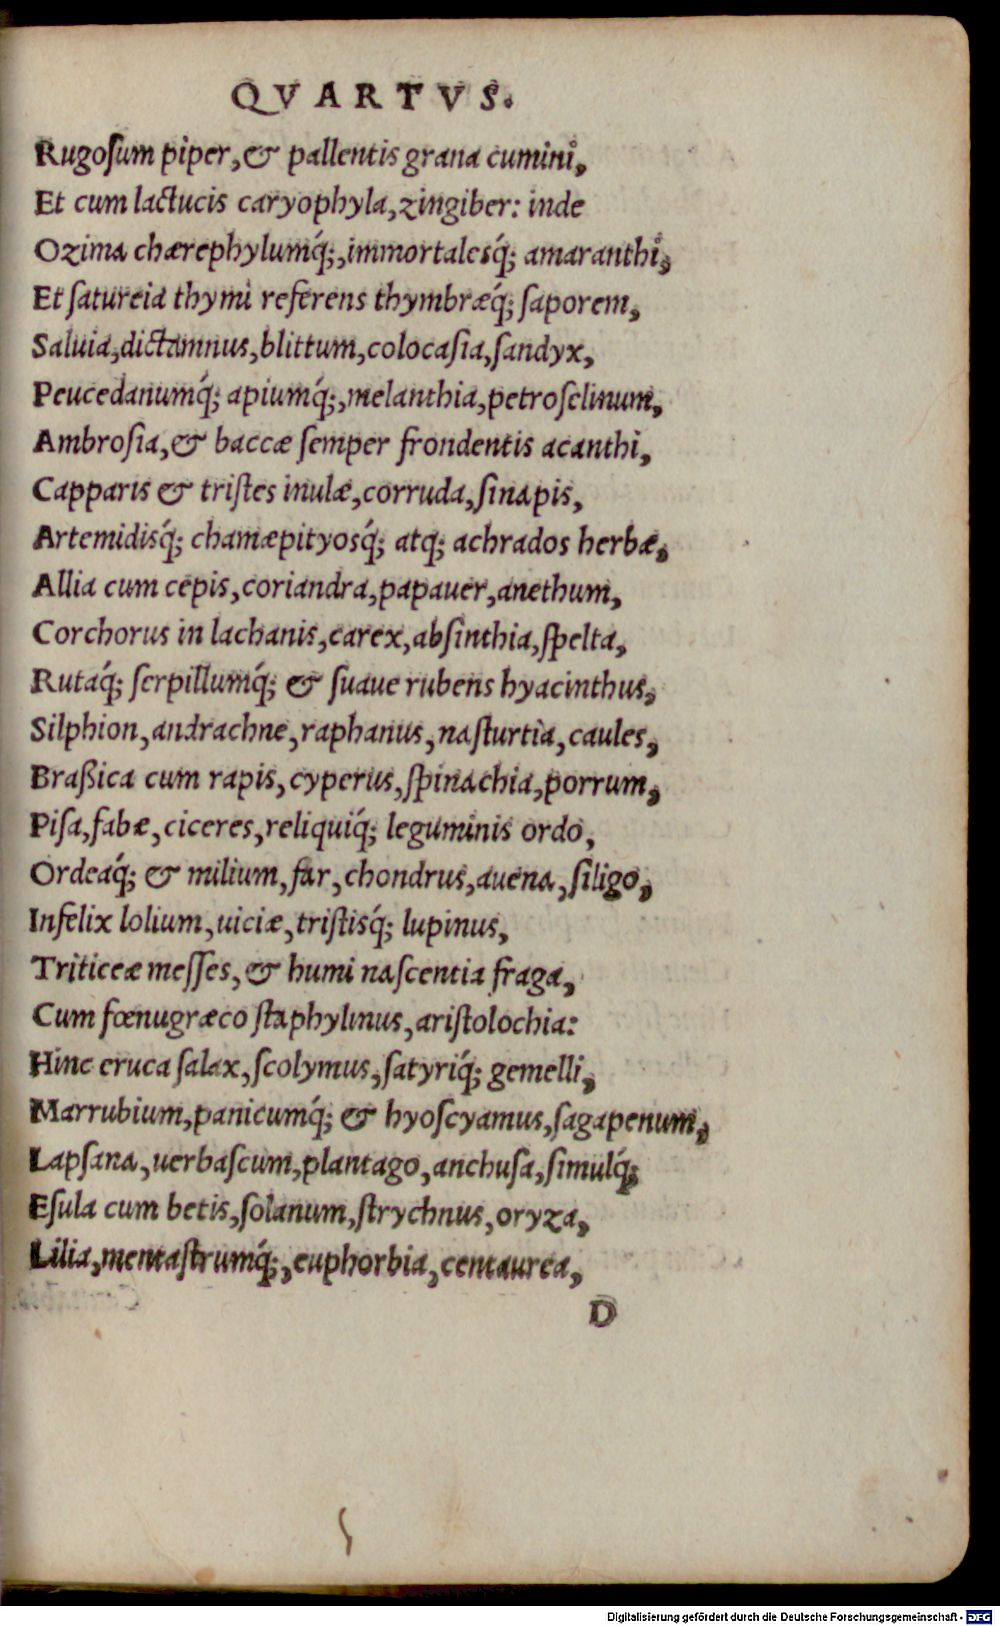 QVARTVS.
Rugoſum piper, & pallentis grana cumini,
Et cum lactucis caryophyla, zingiber: inde
Ozima chærephylumq́;, immortalesq́; amaranthi,
Et ſatureia thymi referens thymbræq́; ſaporem,
Saluia, dictamnus, blittum, colocaſia, ſandyx,
Peucedanumq́; apiumq́;, melanthia, petroſelinum,
Ambroſia, & baccæ ſemper frondentis acanthi,
Capparis & triſtes inulæ, corruda, ſinapis,
Artemidisq́; chamæpityosq́; atq; achrados herbæ,
Allia cum cepis, coriandra, papauer, anethum,
Corchorus in lachanis, carex, abſinthia, ſpelta,
Rutaq́; ſerpillumq́; & ſuaue rubens hyacinthus,
Silphion, andrachne, raphanus, naſturtia, caules,
Braßica cum rapis, cyperus, ſpinachia, porrum,
Piſa, fabæ, ciceres, reliquiq́; leguminis ordo,
Ordeaq́; & milium, far, chondrus, auena, ſiligo,
Infelix lolium, uiciæ, triſtisq́; lupinus,
Triticeæ meſſes, & humi naſcentia fraga,
Cum fœnugræco ſtaphylinus, ariſtolochia:
Hinc eruca ſalax, ſcolymus, ſatyriq́; gemelli,
Marrubium, panicumq́; & hyoſcyamus, ſagapenum,
Lapſana, uerbaſcum, plantago, anchuſa, ſimulq́;
Eſula cum betis, ſolanum, ſtrychnus, oryza,
Lilia, mentaſtrumq́;, euphorbia, centaurea,
D
Digitalisierung gefördert durch die Deutsche Forschungsgemeinschaft - DFG